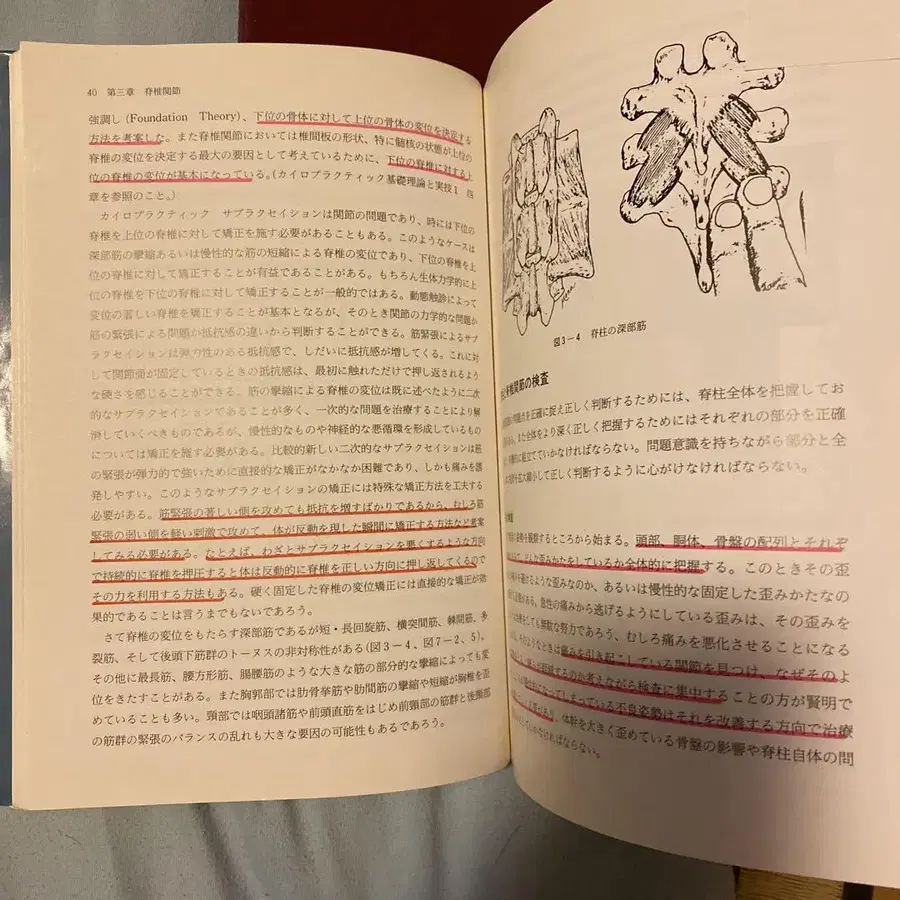 40 第三章 脊椎関節
強調し (Foundation Theory)、下位の骨体に対して上位の骨体の変位を決定する
方法を考案した。また脊椎関節においては椎間板の形状、特に髄核の状態が上位の
脊椎の変位を決定する最大の要因として考えているために、下位の脊椎に対する上
位の脊椎の変位が基本になっている。(カイロプラクティック基礎理論と実技1 四
章を参照のこと。)
カイロプラクティック サブラクセイションは関節の問題であり、時には下位の
脊椎を上位の脊椎に対して矯正を施す必要があることもある。このようなケースは
深部筋の攣縮あるいは慢性的な筋の短縮による脊椎の変位であり、下位の脊椎を上
位の脊椎に対して矯正することが有益であることがある。もちろん生体力学的に上
位の脊椎を下位の脊椎に対して矯正することが一般的ではある。動態触診によって
変位の著しい脊椎を矯正することが基本となるが、そのとき関節の力学的な問題か
筋の緊張による問題か抵抗感の違いから判断することができる。筋緊張によるサブ
ラクセイションは弾力性のある抵抗感で、しだいに抵抗感が増してくる。これに対
して関節面が固定しているときの抵抗感は、最初に触れただけで押し返されるよう
な硬さを感じることができる。筋の攣縮による脊椎の変位は既に述べたように二次
的なサブラクセイションであることが多く、一次的な問題を治療することにより解
消していくべきものであるが、慢性的なものや神経的な悪循環を形成しているもの
については矯正を施す必要がある。比較的新しい二次的なサブラクセイションは筋
の緊張が弾力的で強いために直接的な矯正がなかなか困難であり、しかも痛みを誘
発しやすい。このようなサブラクセイションの矯正には特殊な矯正方法を工夫する
必要がある。筋緊張の著しい側を攻めても抵抗を増すばかりであるから、むしろ筋
緊張の弱い側を軽い刺激で攻めて、体が反動を現した瞬間に矯正する方法など考案
してみる必要がある。たとえば、わざとサブラクセイションを悪くするような方向
で持続的に脊椎を押圧すると体は反動的に脊椎を正しい方向に押し返してくるので
その力を利用する方法もある。硬く固定した脊椎の変位矯正には直接的な矯正が効
果的であることは言うまでもないであろう。
さて脊椎の変位をもたらす深部筋であるが短・長回旋筋、横突間筋、棘間筋、多
裂筋、そして後頭下筋群のトーヌスの非対称性がある(図3—4、図7—2、5)。
その他に最長筋、腰方形筋、腸腰筋のような大きな筋の部分的な攣縮によっても変
位をきたすことがある。また胸郭部では肋骨挙筋や肋間筋の攣縮や短縮が胸椎を歪
めていることも多い。頸部では咽頭諸筋や前頭直筋をはじめ前頸部の筋群と後頸部
の筋群の緊張のバランスの乱れも大きな要因の可能性もあるであろう。
図3—4 脊柱の深部筋
脊椎関節の検査
問題点を正確に捉え正しく判断するためには、脊柱全体を把握してお
また全体をより深く正しく把握するためにはそれぞれの部分を正確
に組立てていかなければならない。問題意識を持ちながら部分と全
拡大縮小して正しく判断するように心がけなければならない。
姿勢を観察するところから始まる。頭部、胴体、骨盤の配列とそれぞ
どんな歪みかたをしているか全体的に把握する。このときその歪
避けるような歪みなのか、あるいは慢性的な固定した歪みかたなの
必要がある。急性の痛みから逃げるようにしている歪みは、その歪みを
しても無駄な努力であろう、むしろ痛みを悪化させることになる
そのようなときは痛みを引き起こしている関節を見つけ、なぜそのよ
のか考えながら検査に集中することの方が賢明で
なってしまっている不良姿勢はそれを改善する方向で治療
体幹を大きく歪めている骨盤の影響や脊柱自体の問
なければならない。